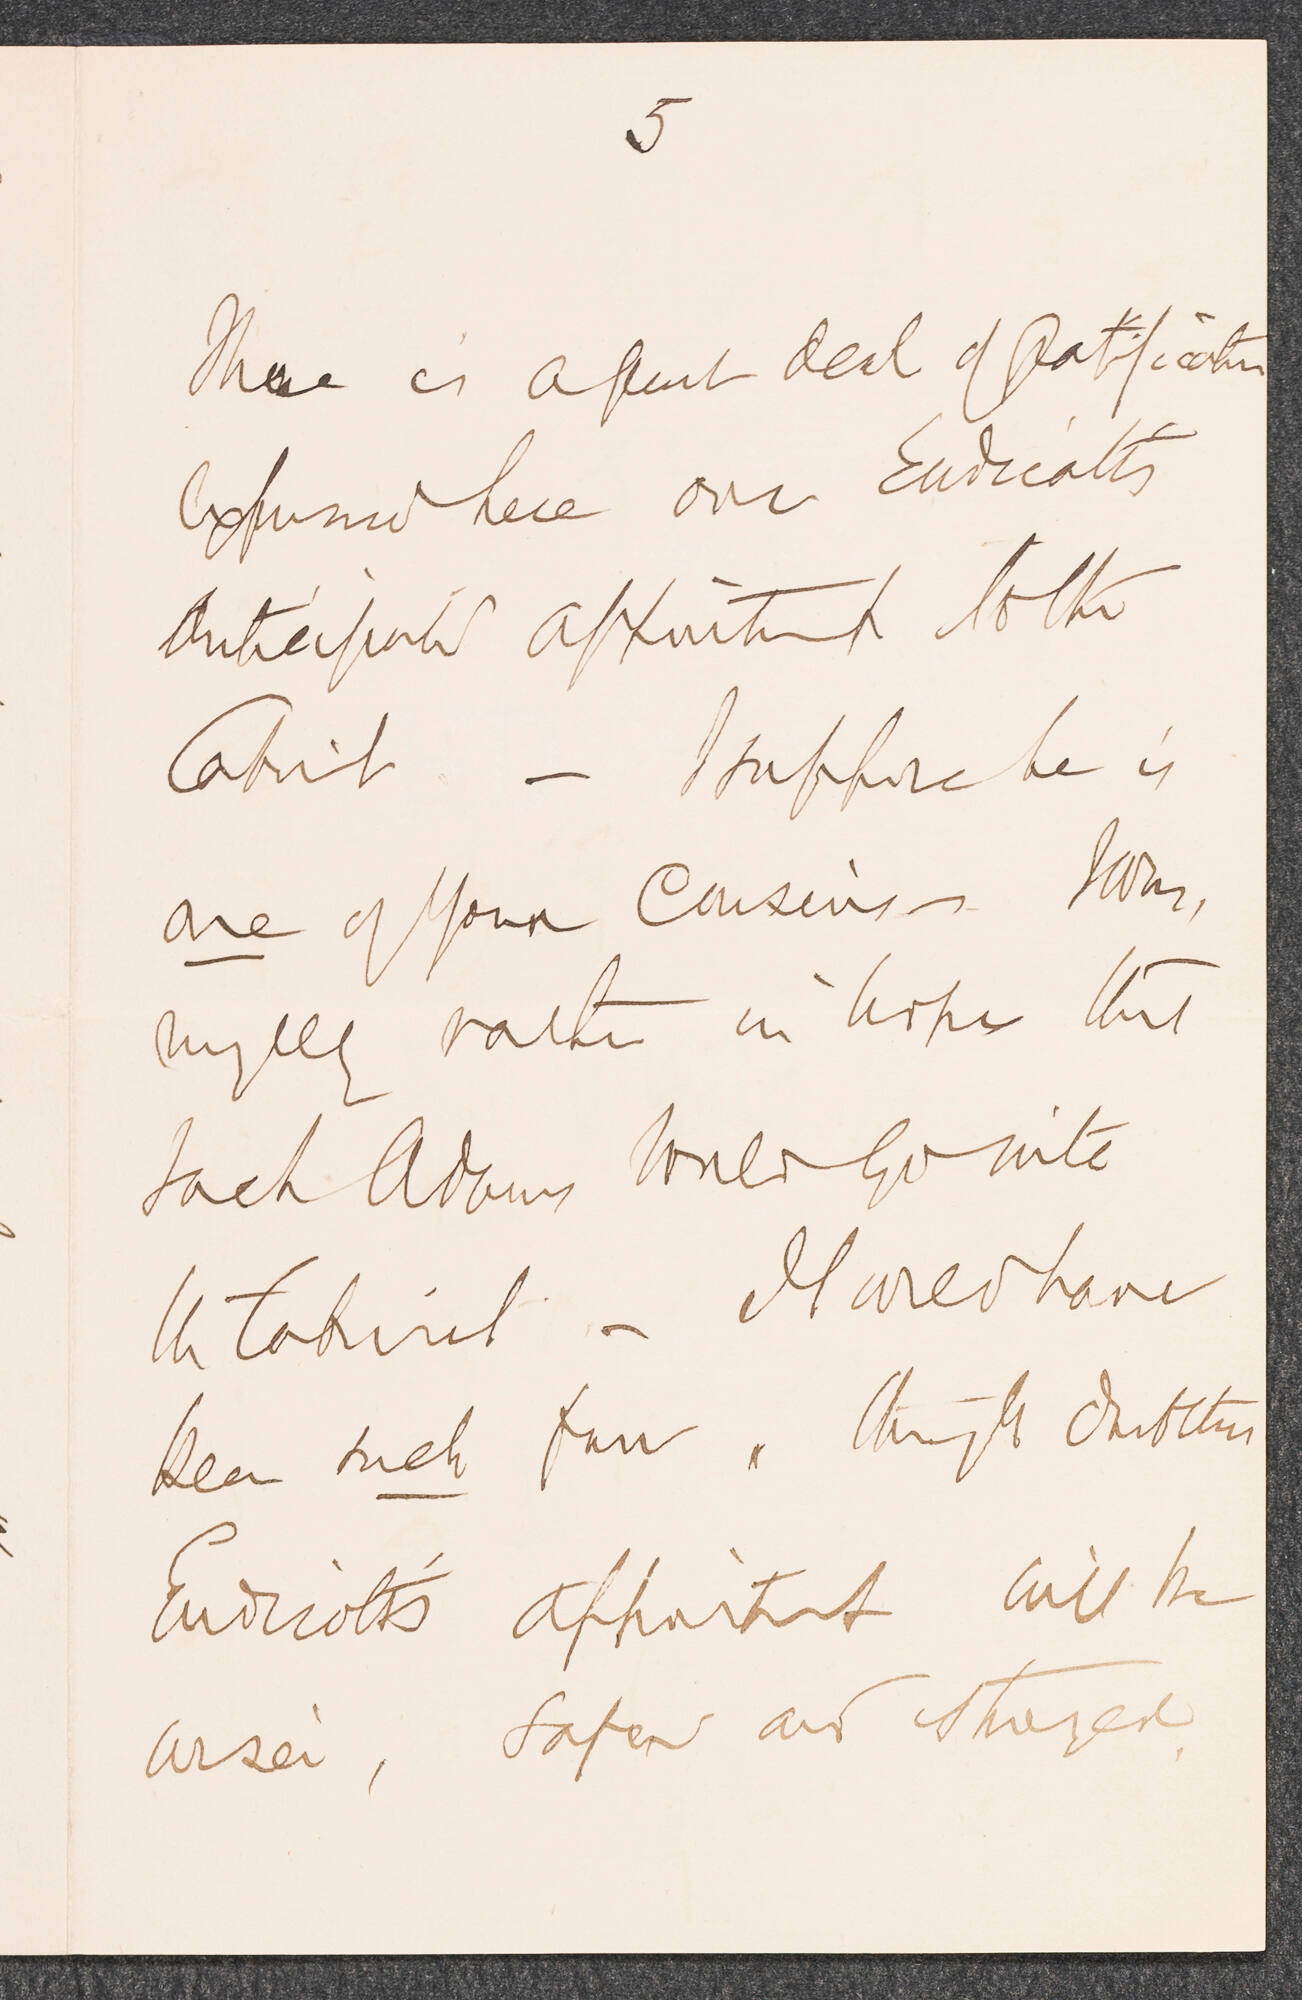 5
There is a great deal of gratification
expressed here over Endicott's
anticipated appointment to the
Cabinet – I suppose he is
one of your cousins – I was,
myself rather in hope that
Jack Adams would go into
the Cabinet – It would have
been such fun, though doubtless
Endicott's appointment will be
wiser, safer and stronger.